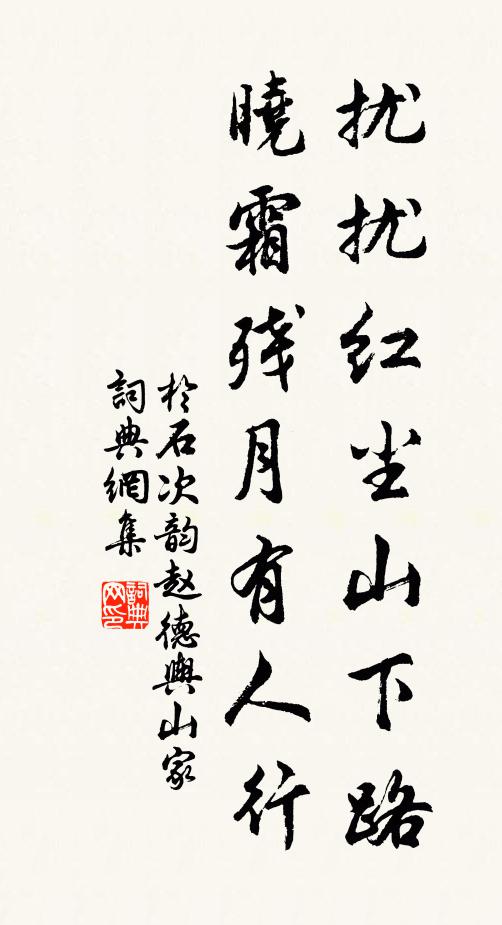 扰扰红尘山下路
曉霜残月有人行
於石次韵赵德舆山家
詞典網集
詞典
网印